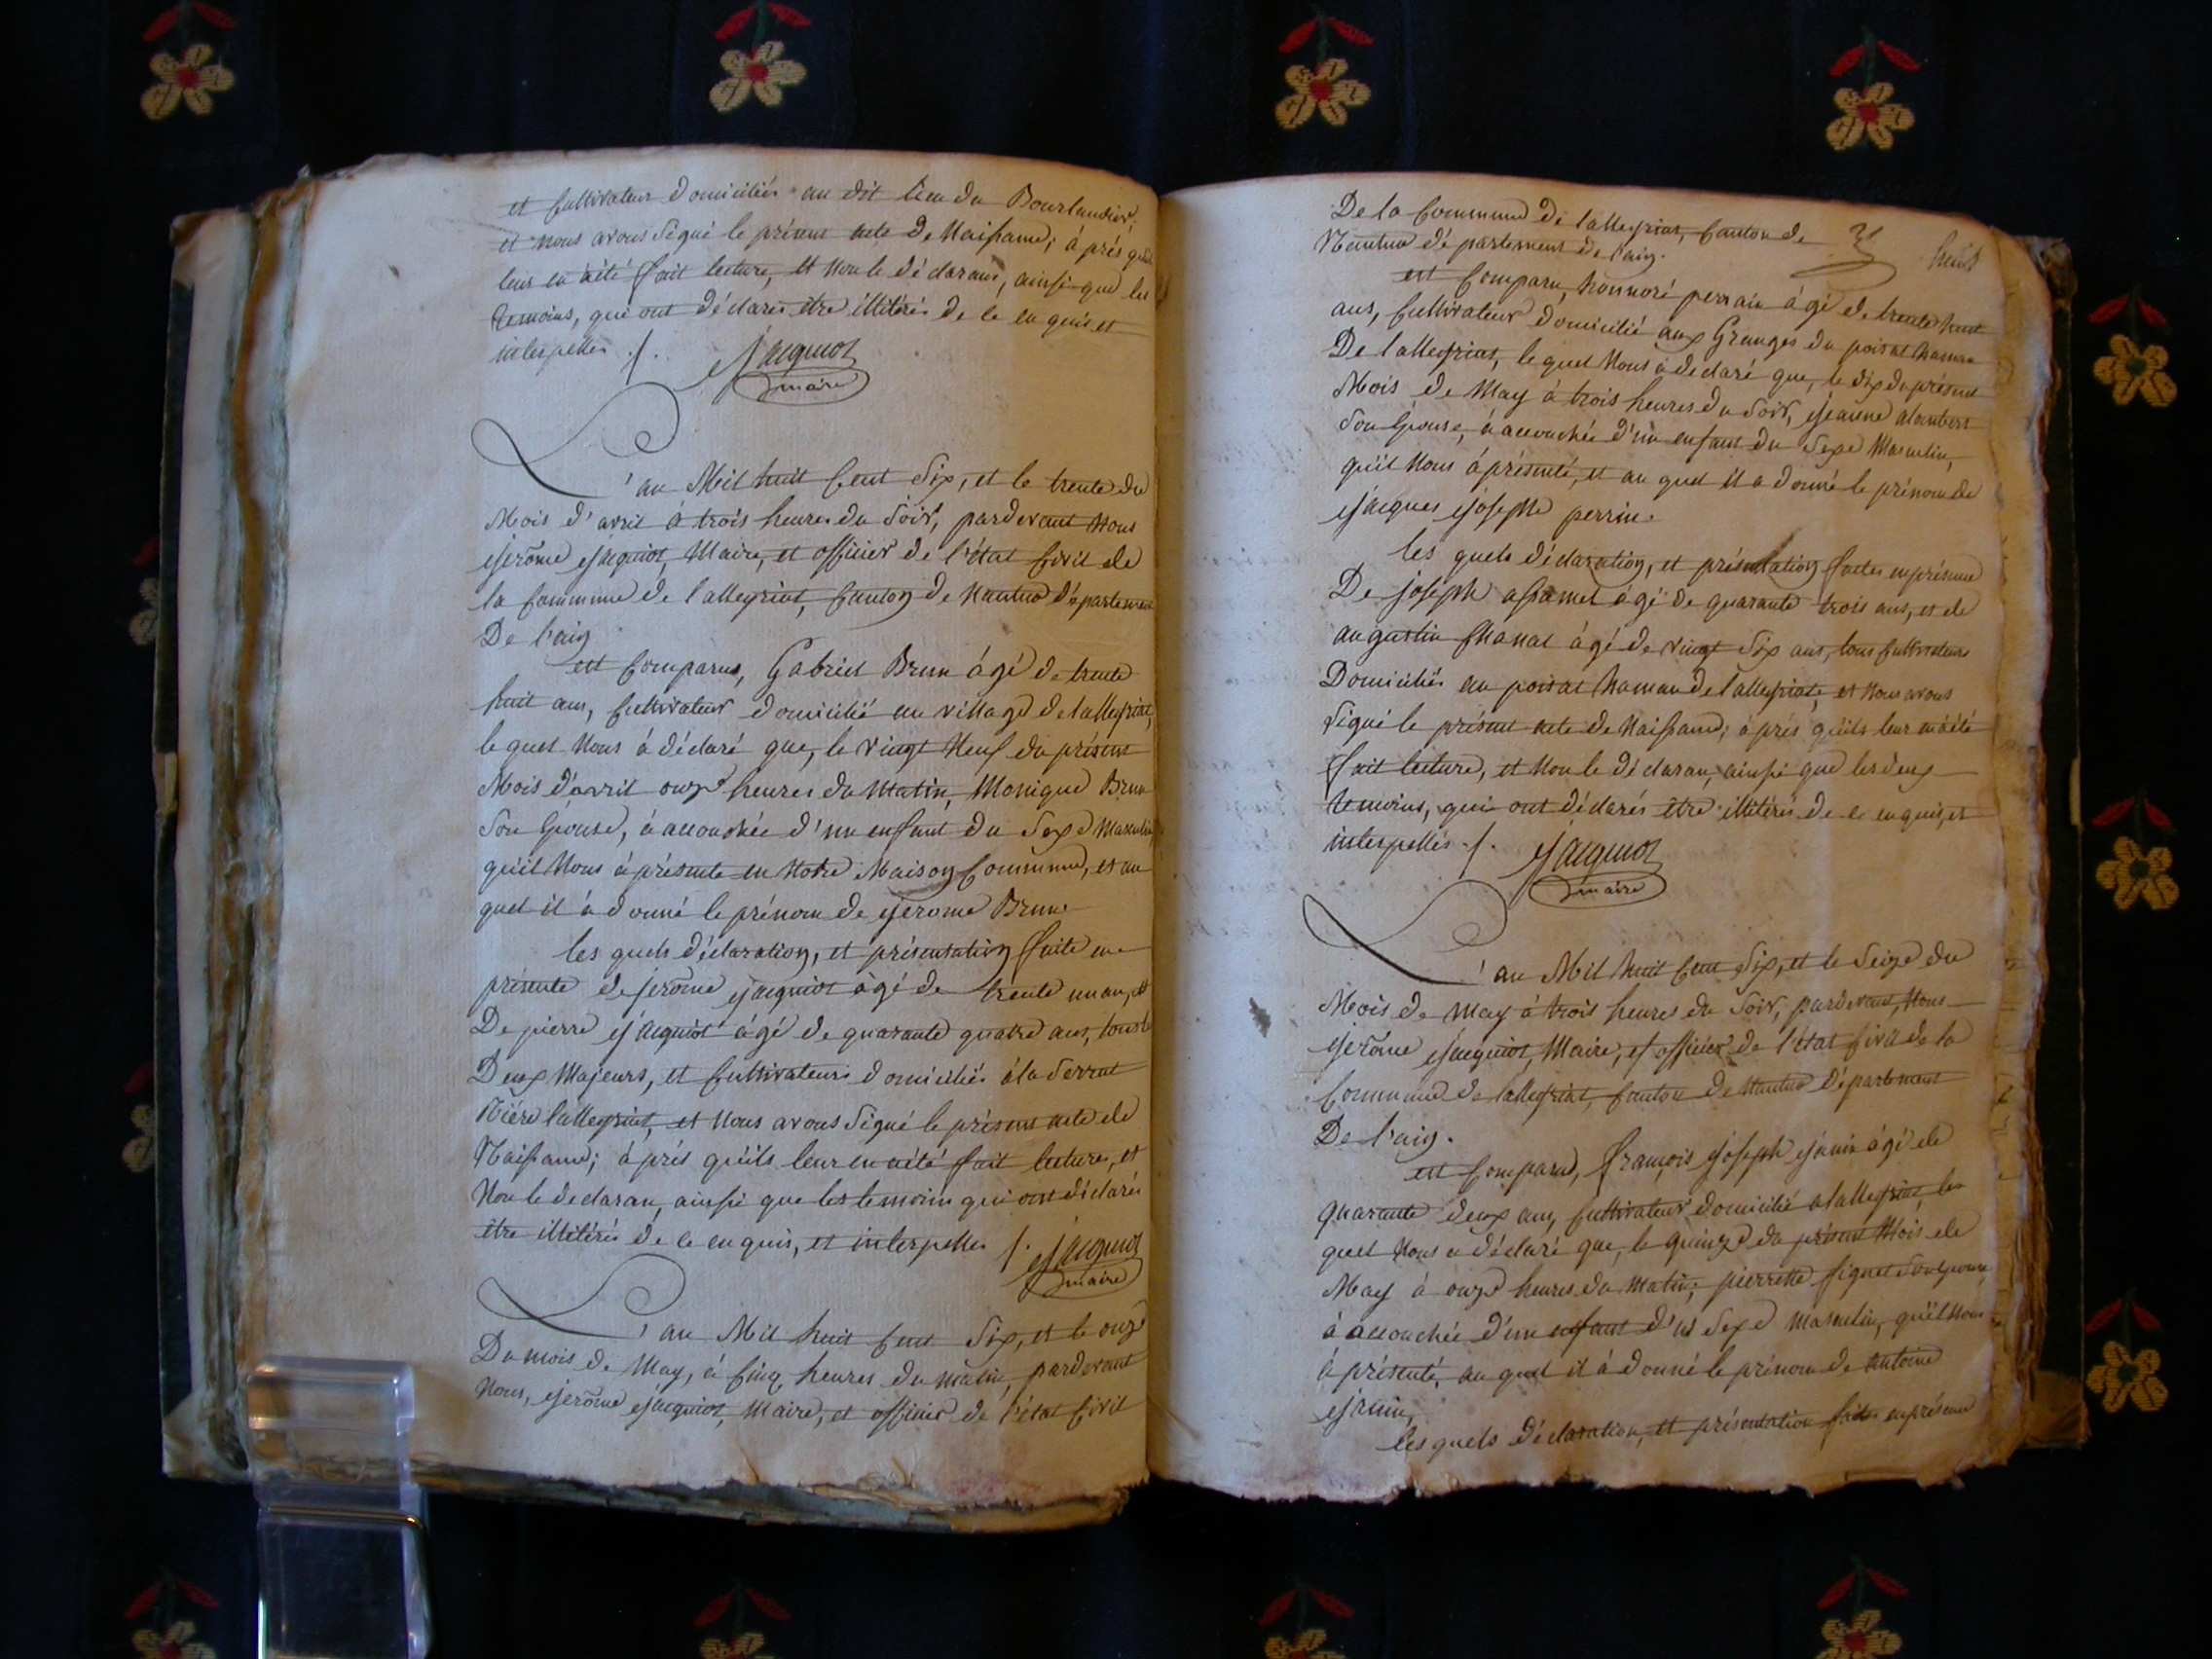 et Cultivateur domiciliés au dit lieu du Bourlaudier.
et Nous avons Signé le présent acte de Naissance; á prés qu'il
leur en á été fait lecture, et Non le déclarans, ainsi que les
temoins, qui ont déclarés être illitérés de ce en quis et
interpellés ./. Jacquiot
maire
L'an Mil huit Cent Six, et le trente du
Mois d'avril á trois heures du Soir, pardevant Nous
Jerôme Jacquiot, Maire, et officier de l'état Civil de
la Commune de lalleyriat, Canton de Nantua département
De l'ain
est Comparus, Gabriel Brun ágé de trente
huit ans, Cultivateur domicilié au village de lalleyriat,
le quel Nous á déclaré que, le vingt Neuf du présent
Mois d'avril onze heures du Matin, Monique Brun
Son Épouse, á accouchée d'un enfant du Sexe Masculin,
qu'il Nous á présenté en Notre Maison Commune, et au
quel il á donné le prénom de Jerome Brun.
les quels déclaration, et présentation faite en
présente de jerôme Jacquiot ágé de trente un an, et
De pierre Jacquiot ágé de quarante quatre ans, tous les
Deux Majeurs, et Cultivateurs domiciliés á la Serrat
Riére lalleyriat, et Nous avons Signé le présent acte de
Naissance; á prés qu'ils leur en á été fait lecture, et
Non le declaran, ainsi que les temoins qui ont déclarés
être illitérés de ce en quis, et interpellés ./. Jacquiot
maire
L'an Mil huit Cent Six, et le onze
Du mois de May, á Cinq heures du matin, pardevant
Nous, Jerôme Jacquiot, Maire, et officier de l'état Civil
De la Commune de lalleyriat, Canton de
Nantua département de l'ain.
huit
est Comparu, honnoré perrin ágé de trente huit
ans, Cultivateur domicilié aux Granges du poisat hamau
De lalleyriat, le quel Nous á déclaré que, le dix du présent
Mois de May á trois heures du Soir, Jeanne alombert
Son Épouse, á accouchée d'un enfant du Sexe Masculin,
qu'il Nous á présenté, et au quel il a donné le prénom de
Jacques Joseph perrin.
les quels déclaration, et présentation faites en présence
De joseph ágé de quarante trois ans, et de
augustin Chanal ágé de vingt Six ans, tous Cultivateurs
Domiciliés au poisat hamau de lalleyriat, et Nous avons
Signé le présent acte de Naissance; á prés qu'ils leur en á été
fait lecture, et Non le déclaran, ainsi que les deux
temoins, qui ont déclarés être illitérés de ce en quis, et
interpellés ./. Jacquiot
maire
L'an Mil huit Cent Six, et le Seize du
Mois de May á trois heures du Soir, pardevant, Nous
Jerôme Jacquiot, Maire, et officier de l'état Civil de la
Commune de lalleyriat, Canton de Nantua Département
De l'ain.
est Comparu, François Joseph Janin ágé de
quarante deux ans, Cultivateur domicilié a lalleyriat, le
quel Nous a déclaré que, le quinze du présent Mois de
May á onze heures du Matin, pierrette Signet Son Épouse
á accouchée d'un enfant du Sexe Masculin, qu'il Nous
á présenté, au quel il á donné le prénom de antoine
Janin,
les quels déclaration, et présentation faite en présence